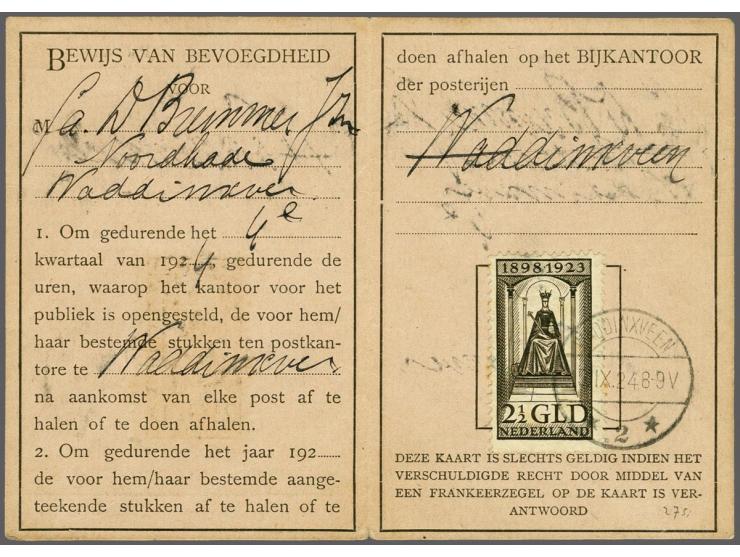 BEWIJS VAN BEVOEGDHEID
VOOR
M Fa. D Bremmer Jzn
Noordkade
Waddinxveen
1. Om gedurende het 4e
kwartaal van 1924 gedurende de
uren, waarop het kantoor voor het
publiek is opengesteld, de voor hem/
haar bestemde stukken ten postkan-
tore te Waddinxveen
na aankomst van elke post af te
halen of te doen afhalen.
2. Om gedurende het jaar 192
de voor hem/haar bestemde aange-
teekende stukken af te halen of te
doen afhalen op het BIJKANTOOR
der posterijen
Waddinxveen
1898 1923
2½ GLD
NEDERLAND
DDINXVEEN
IX.24 8-9V
* 2 *
DEZE KAART IS SLECHTS GELDIG INDIEN HET
VERSCHULDIGDE RECHT DOOR MIDDEL VAN
EEN FRANKEERZEGEL OP DE KAART IS VER-
ANTWOORD
275,